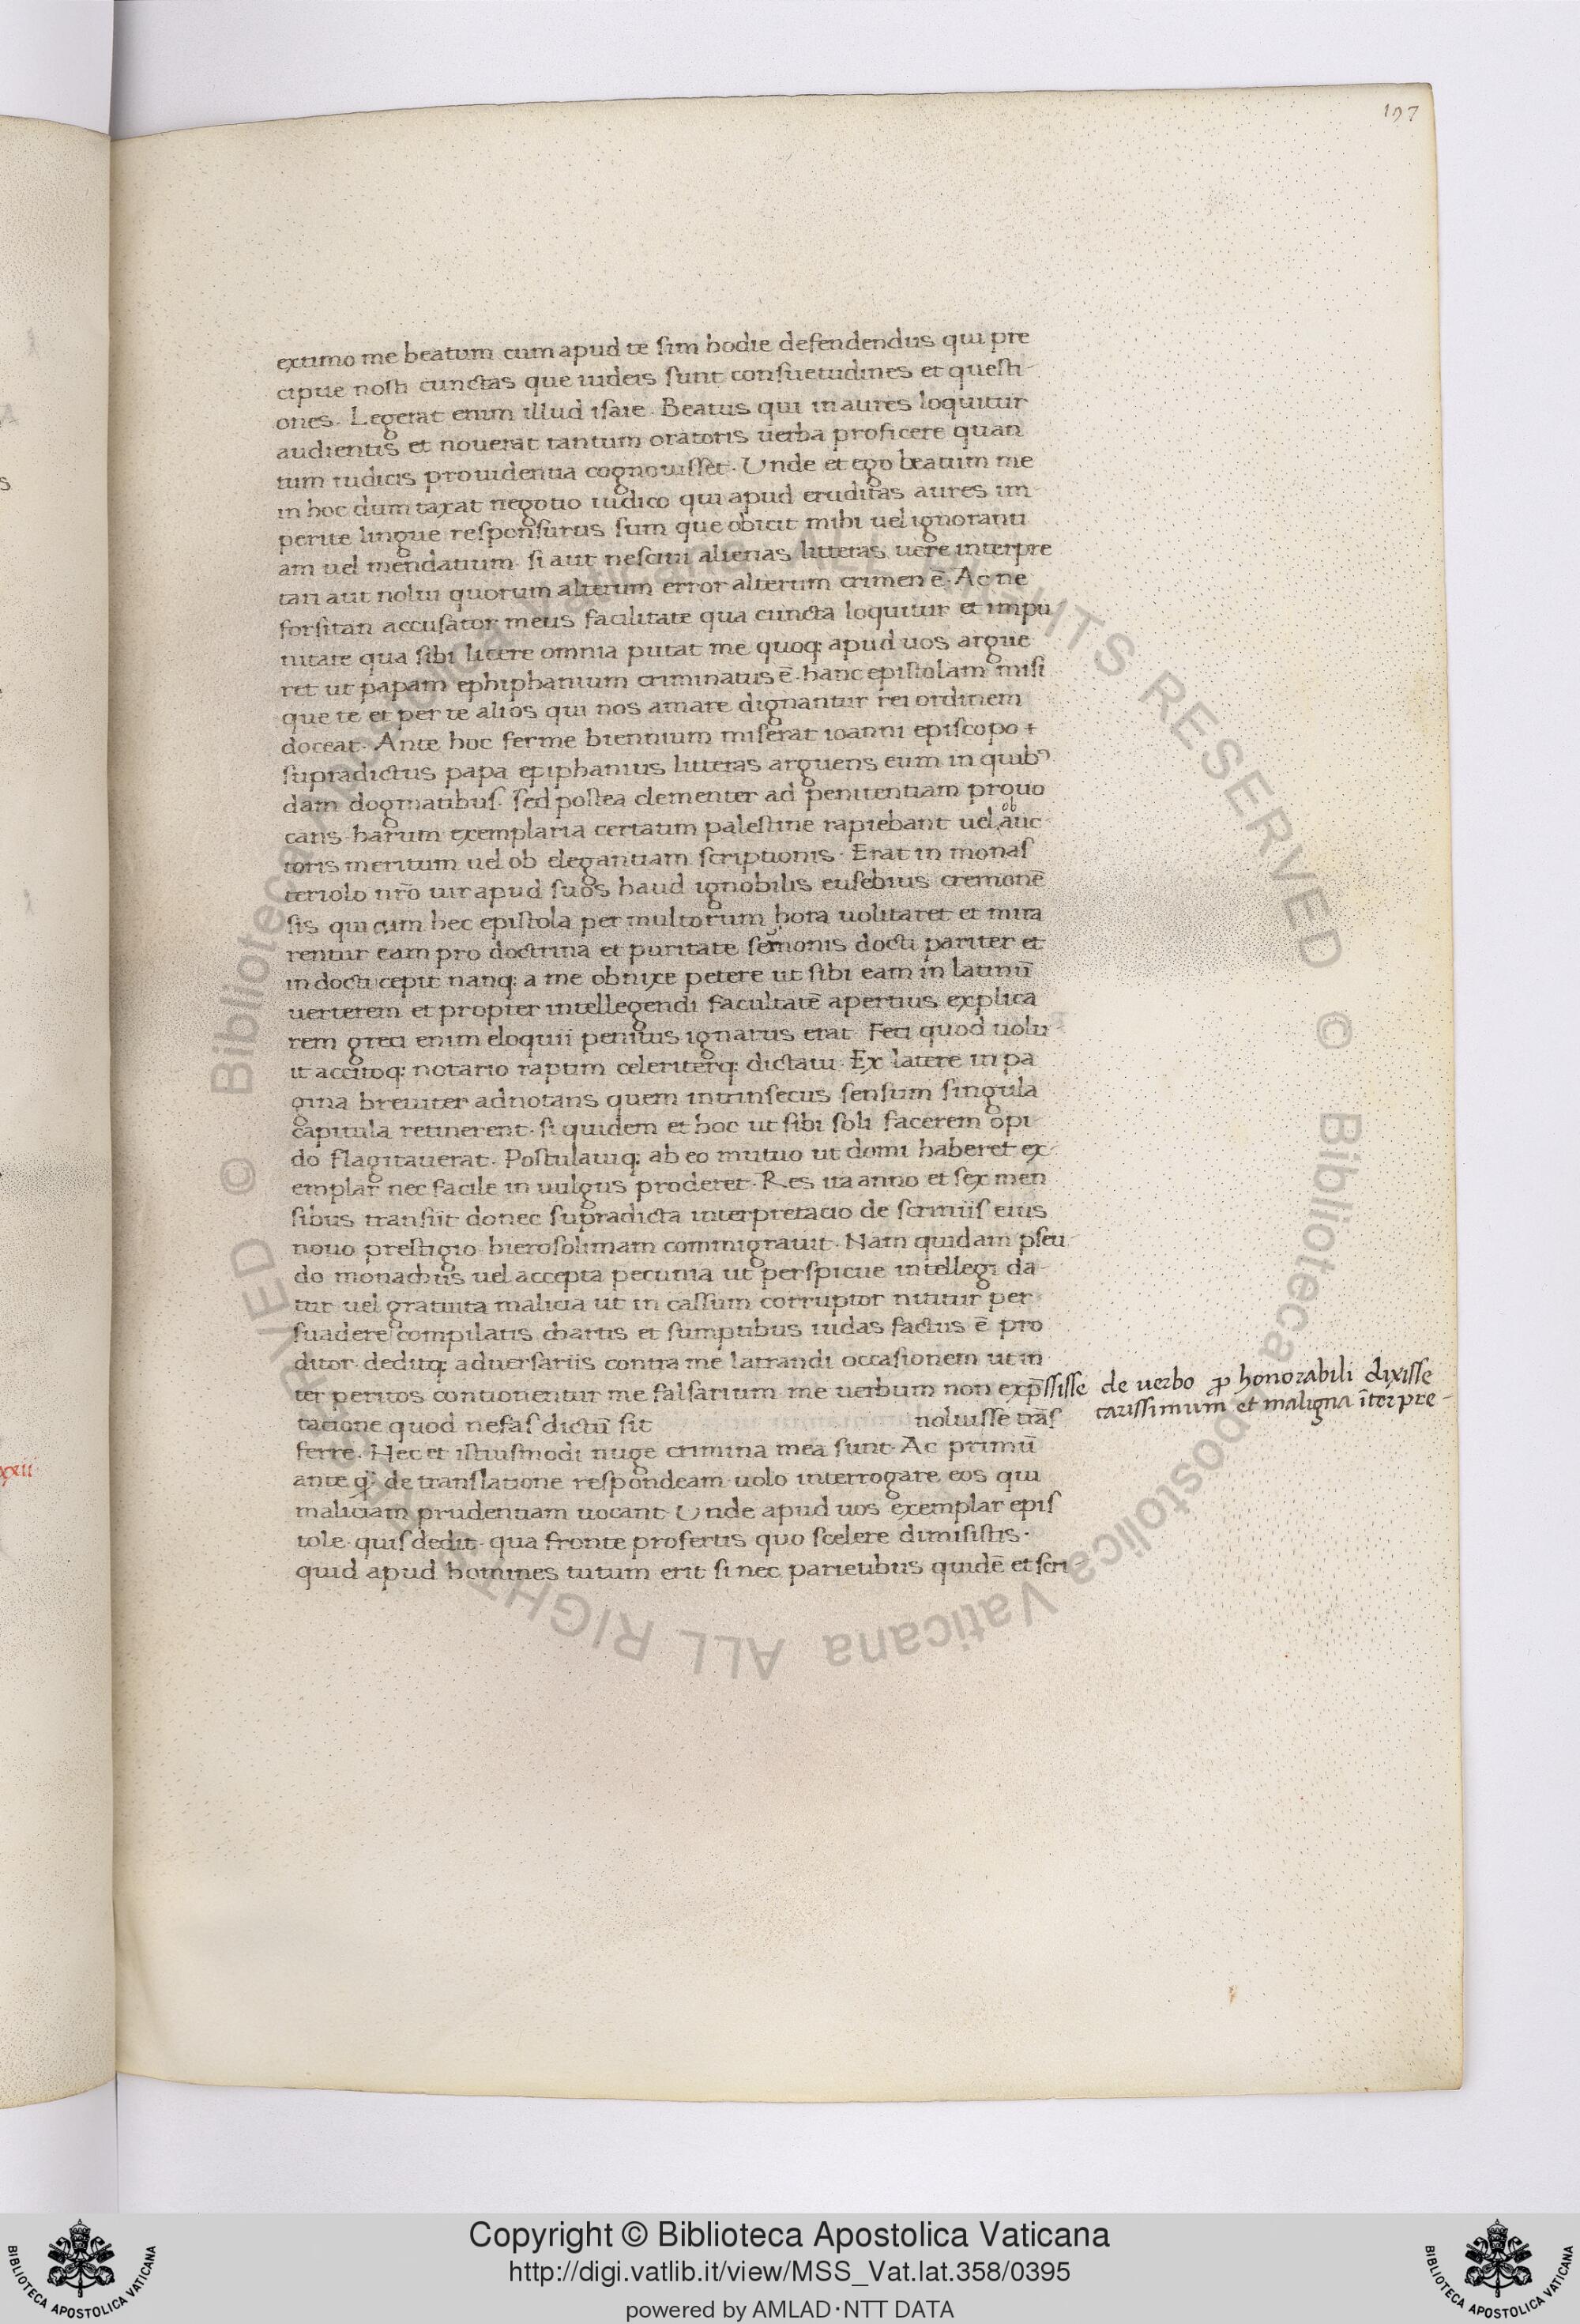 197
extimo me beatum cum apud te sim hodie defendendus qui pre
cipue nosti cunctas que iudeis sunt consuetudines et questi-
ones. Legerat enim illud isaie. Beatus qui in aures loquitur
audientis et nouerat tantum oratoris uerba proficere quan
tum iudicis prouidentia cognouisset. Unde et ego beatum me
in hoc dum taxat negotio iudico qui apud eruditas aures im-
perite lingue responsurus sum que obicit mihi uel ignoranti
am uel mendatium. si aut nesciui alienas litteras uere interpre
tari aut nolui quorum alterum error alterum crimen ē. Ac ne
forsitan accusator meus facilitate qua cuncta loquitur et impu
nitate qua sibi licere omnia putat me quoq; apud uos argue
ret ut papam ephiphanium criminatus ē. hanc epistolam misi
que te et per te alios qui nos amare dignantur rei ordinem
doceat. Ante hoc ferme biennium miserat ioanni episcopo +
supradictus papa epiphanius litteras arguens eum in quibꝰ
dam dogmatibus. sed postea clementer ad penitentiam prouo
cans. harum exemplaria certatim palestine rapiebant uel ob auc-
toris meritum uel ob elegantiam scriptionis. Erat in monas
teriolo nr̄o uir apud suos haud ignobilis eusebius cremonē
sis. qui cum hec epistola per multorum hora uolitaret et mira
rentur eam pro doctrina et puritate sermonis docti pariter et
in docti cepit nanq; a me obnixe petere ut sibi eam in latinū
uerterem et propter intellegendi facultatē apertius explica
rem greci enim eloquii penitus ignarus erat Feci quod uolu-
it accitoq; notario raptim celeriterq; dictaui. Ex latere in pa
gina breuiter adnotans quem intrinsecus sensum singula
capitula retinerent. si quidem et hoc ut sibi soli facerem opi
do flagitauerat. Postulauiq; ab eo mutuo ut domi haberet ex-
emplar nec facile in uulgus proderet. Res ita anno et sex men
sibus transiit donec supradicta interpretatio de scriniis eius
nouo prestigio hierosolimam commigrauit. Nam quidam pseu-
do monachus uel accepta pecunia ut perspicue intellegi da-
tur uel gratuita malicia ut in cassum corruptor nititur per
suadere compilatis chartis et sumptibus iudas factus ē pro
ditor. deditq; aduersariis contra me latrandi occasionem ut in
ter peritos contionentur me falsarium me uerbum non exp̄ssisse de uerbo ꝓ honorabili dixisse
carissimum et maligna īterpre-
tatione quod nefas dictū sit noluisse trās
ferre. Hec et istiusmodi nuge crimina mea sunt. Ac primū
ante q̄ de translatione respondeam uolo interrogare eos qui
maliciam prudentiam uocant. Unde apud uos exemplar epis
tole. quis dedit. qua fronte profertis quo scelere dimisistis.
quid apud homines tutum erit si nec parietibus quidē et scri-
xxii
© Biblioteca Apostolica Vaticana ALL RIGHTS RESERVED
Copyright © Biblioteca Apostolica Vaticana
http://digi.vatlib.it/view/MSS_Vat.lat.358/0395
powered by AMLAD·NTT DATA
BIBLIOTECA APOSTOLICA VATICANA
BIBLIOTECA APOSTOLICA VATICANA